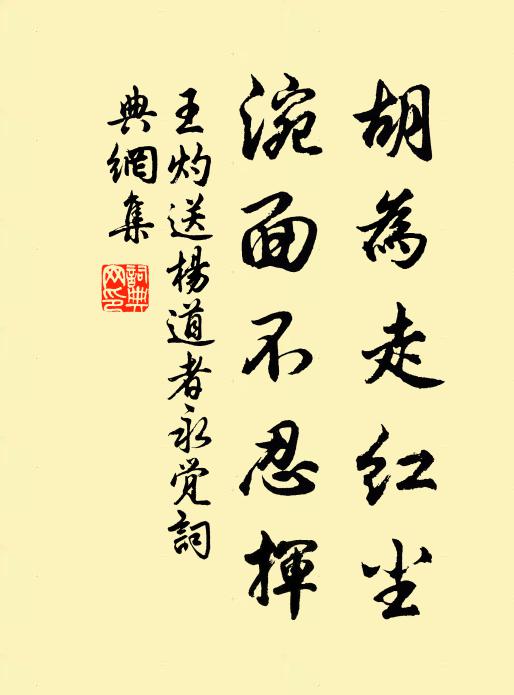 胡為走红尘
涴面不忍揮
王灼送楊道者永觉詞
典網集
詞典网印